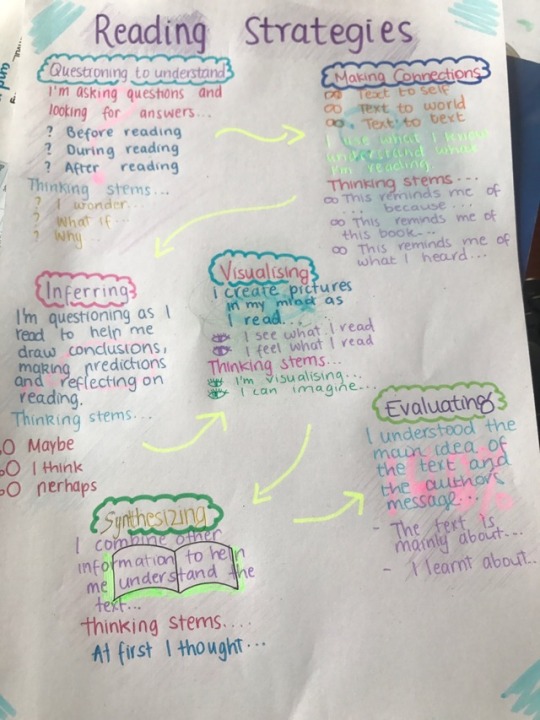 Reading Strategies
Questioning to understand
I'm asking questions and
looking for answers...
? Before reading
? During reading
? After reading
Thinking stems...
? I wonder...
? What if...
? Why
Making Connections
Text to self
Text to world
Text to text
I use what I know
understand what
I'm reading.
Thinking stems...
This reminds me of
.... because ...
This reminds me of
this book...
This reminds me of
what I heard...
Inferring
I'm questioning as I
read to help me
draw conclusions,
making predictions
and reflecting on
reading.
Thinking stems...
Maybe
I think
perhaps
Visualising
I create pictures
in my mind as
I read...
I see what I read
I feel what I read
Thinking stems...
I'm visualising...
I can imagine...
Synthesizing
I combine other
information to help
me understand the
text...
Thinking stems....
At first I thought...
Evaluating
I understood the
main idea of
the text and
the authors
message...
- The text is
mainly about...
- I learnt about..